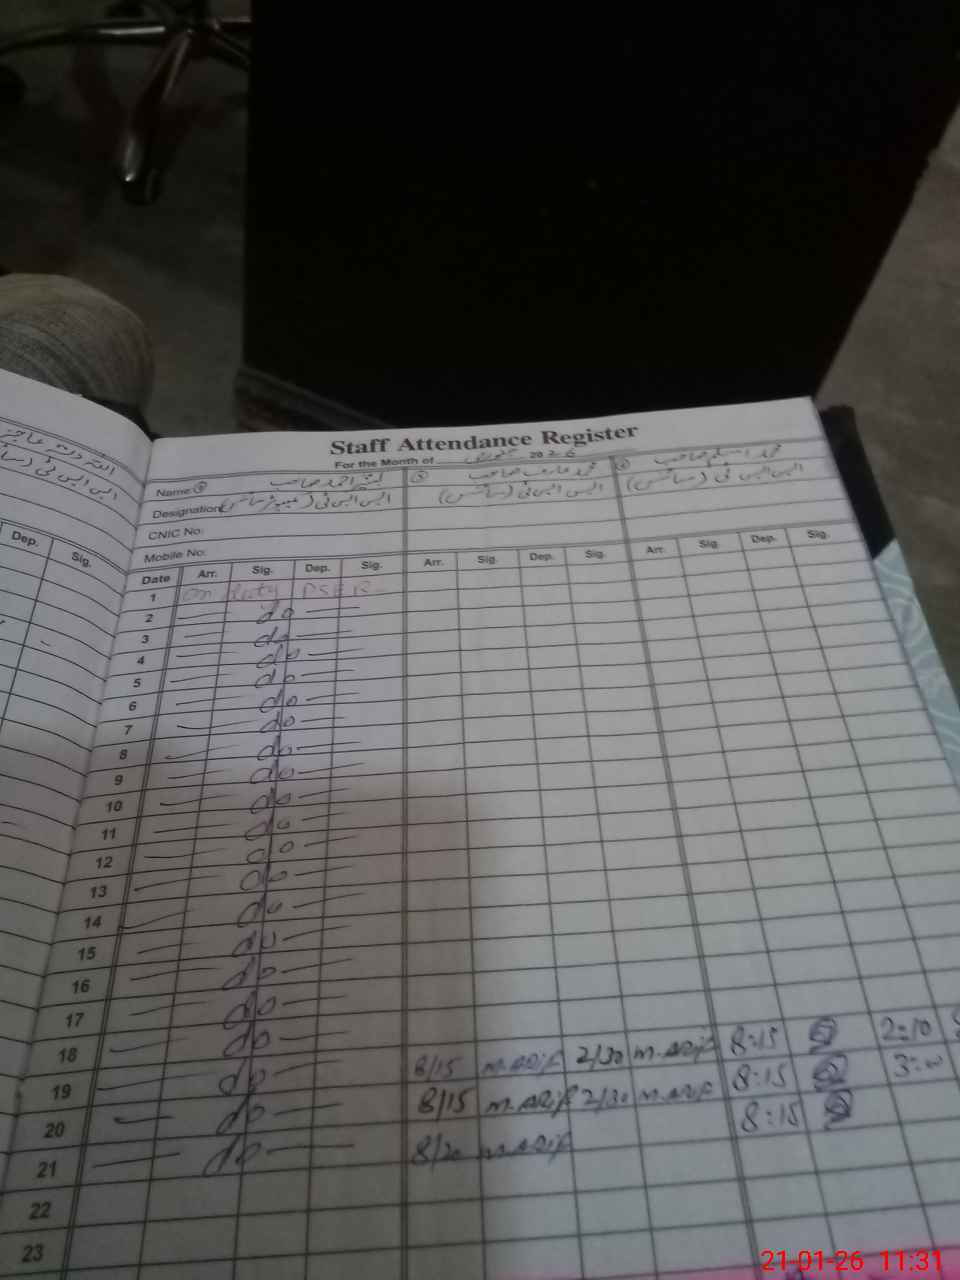 Staff Attendance Register
For the Month of جنوری 2026
Name: ④ بشیر احمد صاحب ⑤ محمد عارف صاحب ⑥ محمد اسلم صاحب
Designation (ایس ایس ٹی (کمپیوٹر سائنس (ایس ایس ٹی (سائنس (ایس ایس ٹی (سائنس
CNIC No:
Mobile No:
Dep. Sig.
Date Arr. Sig. Dep. Sig. Arr. Sig. Dep. Sig. Arr. Sig. Dep. Sig.
1 On duty PSER
2 — do —
3 — do —
4 — do —
5 — do —
6 — do —
7 — do —
8 — do —
9 — do —
10 — do —
11 — do —
12 — do —
13 — do —
14 — do —
15 — do —
16 — do —
17 — do —
18 — do —
19 — do — 8/15 M.ARif 2/30 M.ARif 8:15 2:10
20 — do — 8/15 M.ARif 2/30 M.ARif 8:15 3:00
21 — do — 8/20 M.ARif 8:15
22
23
21-01-26 11:31